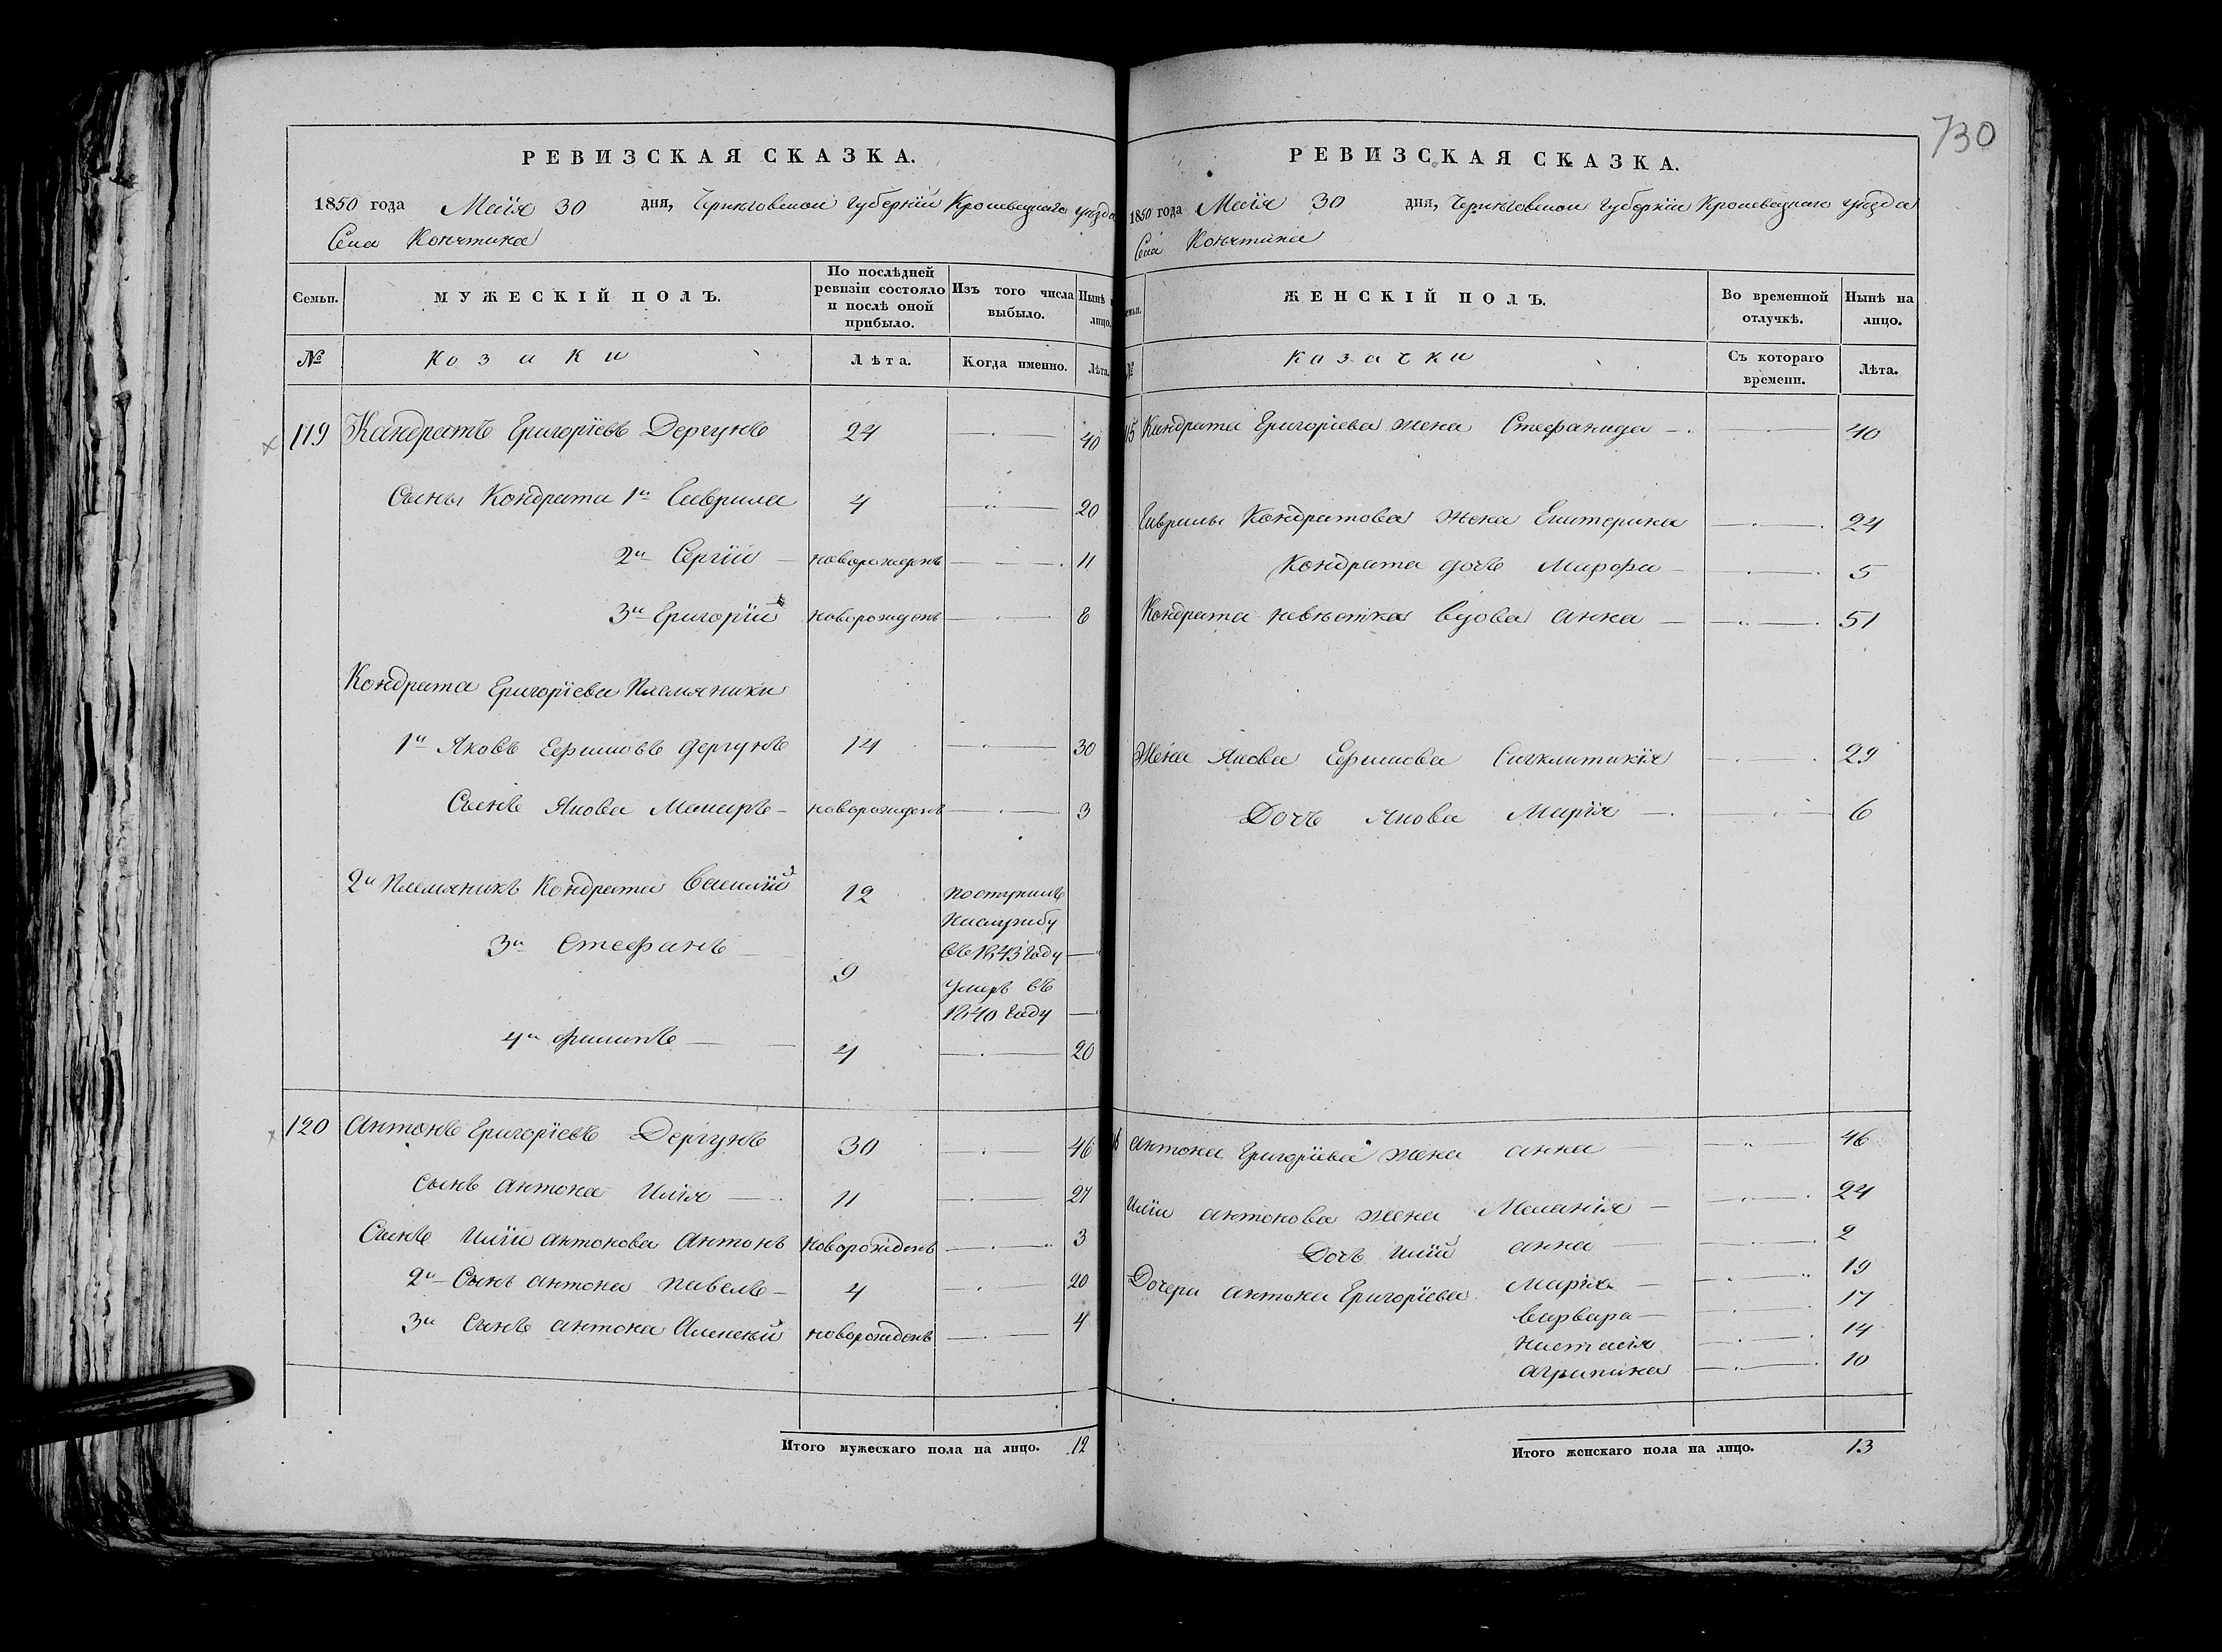 730
РЕВИЗСКАЯ СКАЗКА.
1850 года Маія 30 дня, Черниговской Губерніи Кролевецкаго уѣзда
Села Конятина
Семьи. МУЖЕСКІЙ ПОЛЪ. По послѣдней ревизіи состояло и послѣ оной прибыло. Изъ того числа выбыло. Нынѣ лицо.
№ Козаки Лѣта. Когда именно. Лѣта.
119 Кандратъ Григоріевъ Дергунъ 24 40
Сыны Кондрата 1й Гаврила 4 20
2й Сергій новорожденъ 11
3й Григорій новорожденъ 8
Кондрата Григоріева Племяники
1й Яковъ Ефимовъ Дергунъ 14 30
Сынъ Якова новорожденъ 3
2й Племяникъ Кондрата Василій 12 поступилъ
наслужбу
въ 1843 Году
3й Стефанъ 9 умеръ въ
1840 Году
4й Филипъ 4 20
120 Антонъ Григоріевъ Дергунъ 30 46
Сынъ Антона Илія 11 27
Сынъ Иліи Антонова Антонъ Новорожденъ 3
2й Сынъ Антона Павелъ 4 20
3й Сынъ Антона Алексѣй новорожденъ 4
Итого мужескаго пола на лицо. 12
РЕВИЗСКАЯ СКАЗКА.
1850 года Маія 30 дня, Черниговской Губерніи Кролевецкаго уѣзда
Села Конятина
ЖЕНСКІЙ ПОЛЪ. Во временной отлучкѣ. Нынѣ на лицо.
№ Казачки Съ котораго времени. Лѣта.
Кандрата Григоріева жена Стефанида 40
Гаврилы Кондратова жена Екатерина 24
Кондрата дочъ Марфа 5
Кондрата невѣстка вдова Анна 51
Жена Якова Ефимова Сигклитикія 29
Дочъ Якова Марія 6
Антона Григоріева жена Анна 46
Иліи Антонова жена Меланія 24
Дочъ Иліи Анна 2
Дочери Антона Григоріева Марія 19
Варвара 17
Настасія 14
Агрипина 10
Итого женскаго пола на лицо. 13